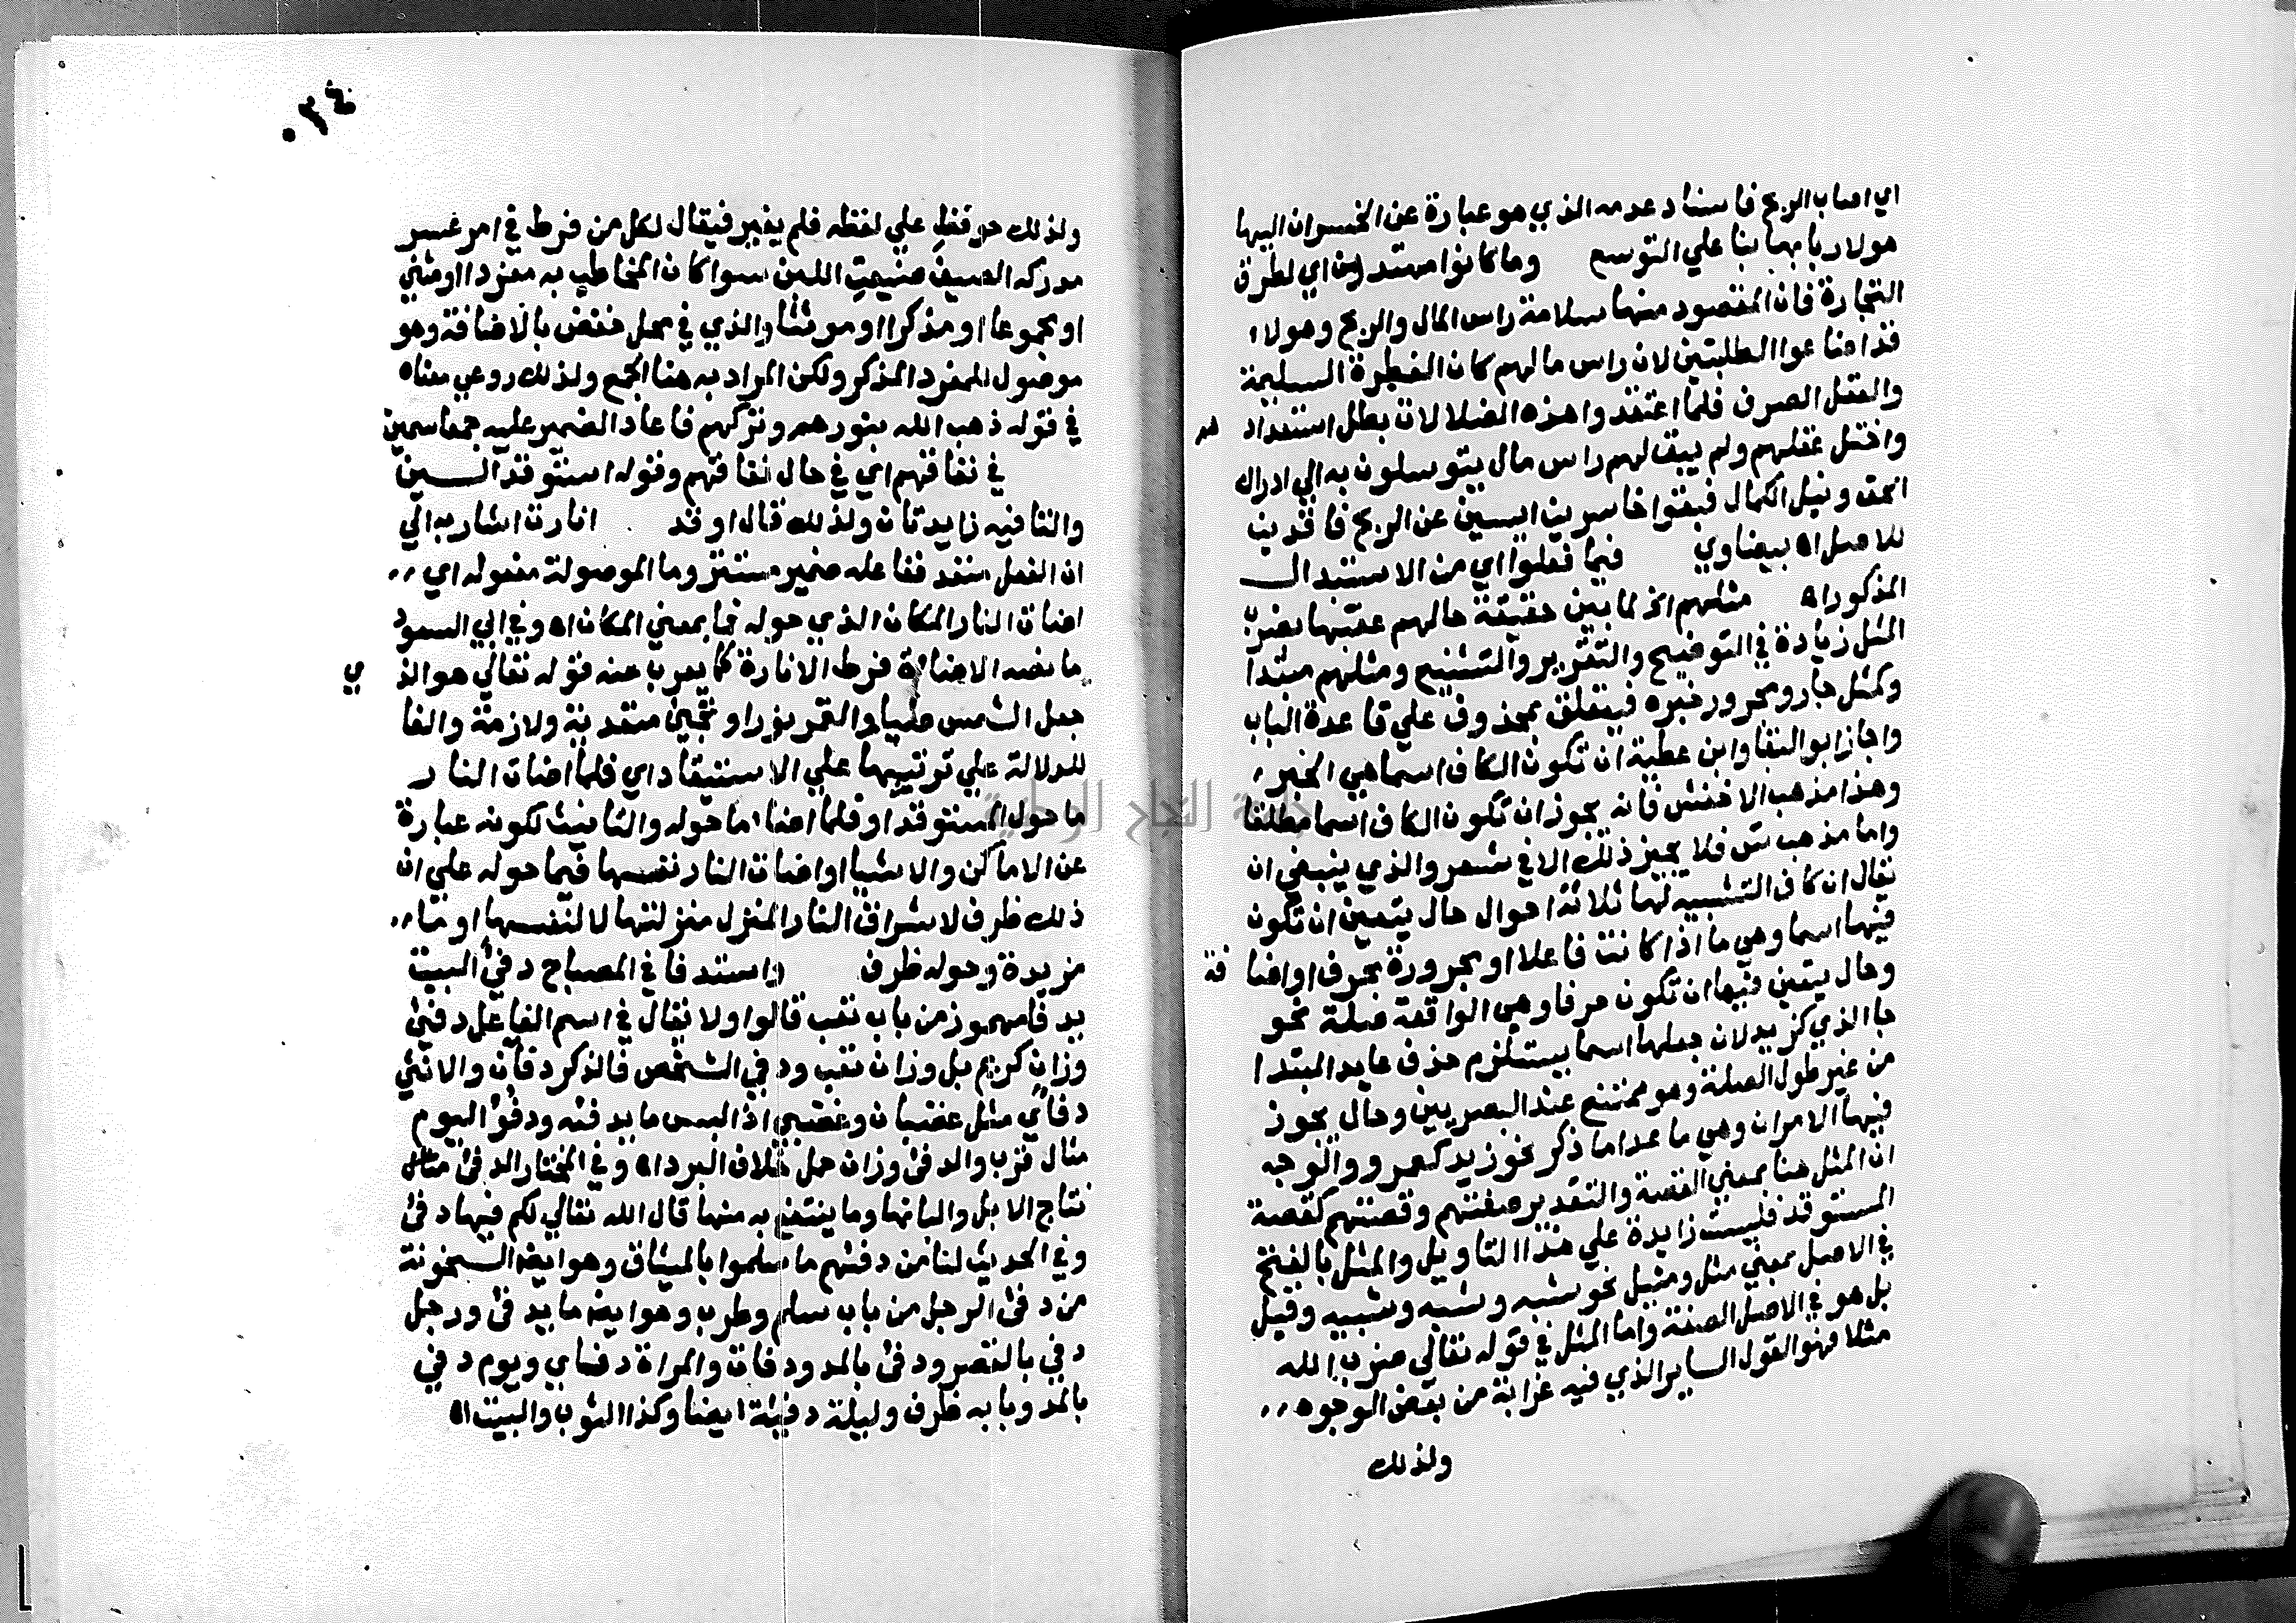 اي اصاب الربح فاسناد عدمه الذي هو عبارة عن الخسران اليها
هو لاربابها بنا علي التوسع وما كانوا مهتدين اي لطرق
التجارة فان المقصود منها سلامة راس المال والربح وهولاء
قد اضاعوا الطلبتين لان راس مالهم كان الفطرة السليمة
والعقل الصرف فلما اعتقدوا هذه الضلالات بطل استعداد هم
واختل عقلهم ولم يبق لهم راس مال يتوسلون به الي ادراك
الحق ونيل الكمال فبقوا خاسرين ايسين عن الربح فاقدين
للاصل اه بيضاوي فيما فعلوا اي من الاستبدال
المذكور اه مثلهم الخ لما بين حقيقة حالهم عقبها بضرب
المثل زيادة في التوضيح والتقرير والتشنيع ومثلهم مبتدا
وكمثل جار ومجرور خبره فيتعلق بمحذوف علي قاعدة الباب
واجاز ابو البقا وابن عطية ان تكون الكاف اسما هي الخبر
وهذا مذهب الاخفش فانه يجوز ان تكون الكاف اسما مطلقا
واما مذهب س فلا يجيز ذلك الا في شعر والذي ينبغي ان
يقال ان كاف التشبيه لها ثلاثة احوال حال يتعين ان تكون
فيها اسما وهي ما اذا كانت فاعلا او مجرورة بحرف او اضا فة
وحال يتعين فيها ان تكون حرفا وهي الواقعة صلة نحو
جا الذي كزيد لان جعلها اسما يستلزم حذف عايد المبتدا
من غير طول الصلة وهو ممتنع عند البصريين وحال يجوز
فيها الامران وهي ما عدا ما ذكر نحو زيد كعمرو والوجه
ان المثل هنا بمعني القصة والتقدير صفتهم وقصتهم كقصة
المستوقد فليست زايدة علي هذا التاويل والمثل بالفتح
في الاصل بمعني مثل ومثيل نحو شبه وشبه وشبيه وقيل
بل هو في الاصل الصفة واما المثل في قوله تعالي ضرب الله
مثلا فهو القول الساير الذي فيه غرابة من بعض الوجوه
ولذلك
٠٣٤
ولذلك حوفظ علي لفظه فلم يغير فيقال لكل من فرط في امر عسر
مدركه الصيف ضيعت اللبن سوا كان المخاطب به مفردا او مثني
او مجموعا او مذكرا او مونثا والذي في محل خفض بالاضافة وهو
موصول للمفرد المذكر ولكن المراد به هنا الجمع ولذلك روعي معناه
في قوله ذهب الله بنورهم وتركهم فاعاد الضمير عليه جمعا سمين
في نفاقهم اي في حال نفاقهم وقوله استوقد السين
والتا فيه زايدتان ولذلك قال اوقد انارت اشار به الي
ان الفعل متعد ففاعله ضمير مستتر وما الموصولة مفعوله اي
اضات النار المكان الذي حوله فما بمعني المكان اه وفي ابي السعود
ما نصه الاضائة فرط الانارة كما يعرب عنه قوله تعالي هو الذ ي
جعل الشمس ضيا والقمر نورا وتجئ متعدية ولازمة والفا
للدلالة علي ترتيبها علي الاستيقاد اي فلما اضات النار
ما حول المستوقد او فلما اضاء ما حوله والتانيث لكونه عبارة
عن الاماكن والاشيا او اضات النار نفسها فيما حوله علي ان
ذلك ظرف لاشراق النار المنزل منزلتها لا لنفسها او ما
مزيدة وحوله ظرف واستدفا في المصباح دفئ البيت
يدفا مهموز من باب تعب قالوا ولا يقال في اسم الفاعل دفئ
وزان كريم بل وزان تعب ودفي الشخص فالذكر دفان والانثي
دفاي مثل غضبان وغضبي اذا لبس ما يدفئه ودفؤ اليوم
مثال قرب والدفئ وزان حمل خلاف البرد اه وفي المختار الدفئ
نتاج الابل والبانها وما ينتفع به منها قال الله تعالي لكم فيها دفئ
وفي الحديث لنا من دفئهم ما سلموا بالميثاق وهو ايضا السخونة
من دفئ الرجل من باب سلم وطرب وهو ايضا ما يدفئ ورجل
دفي بالقصر ودفئ بالمد ودفان والمراة دفاي ويوم دفي
بالمد وبابه ظرف وليلة دفيئة ايضا وكذا الثوب والبيت اه